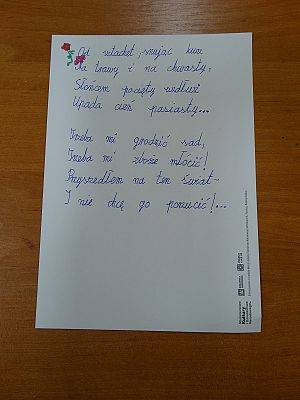 Od sztachet, snując kurz
Na trawy i na chwasty,
Słońcem pocięty wzdłuż
Upada cień pasiasty...
Trzeba mi grodzić sad,
Trzeba mi zboże młócić!
Przyszedłem na ten świat-
I nie chcę go porzucić!...
Kultury